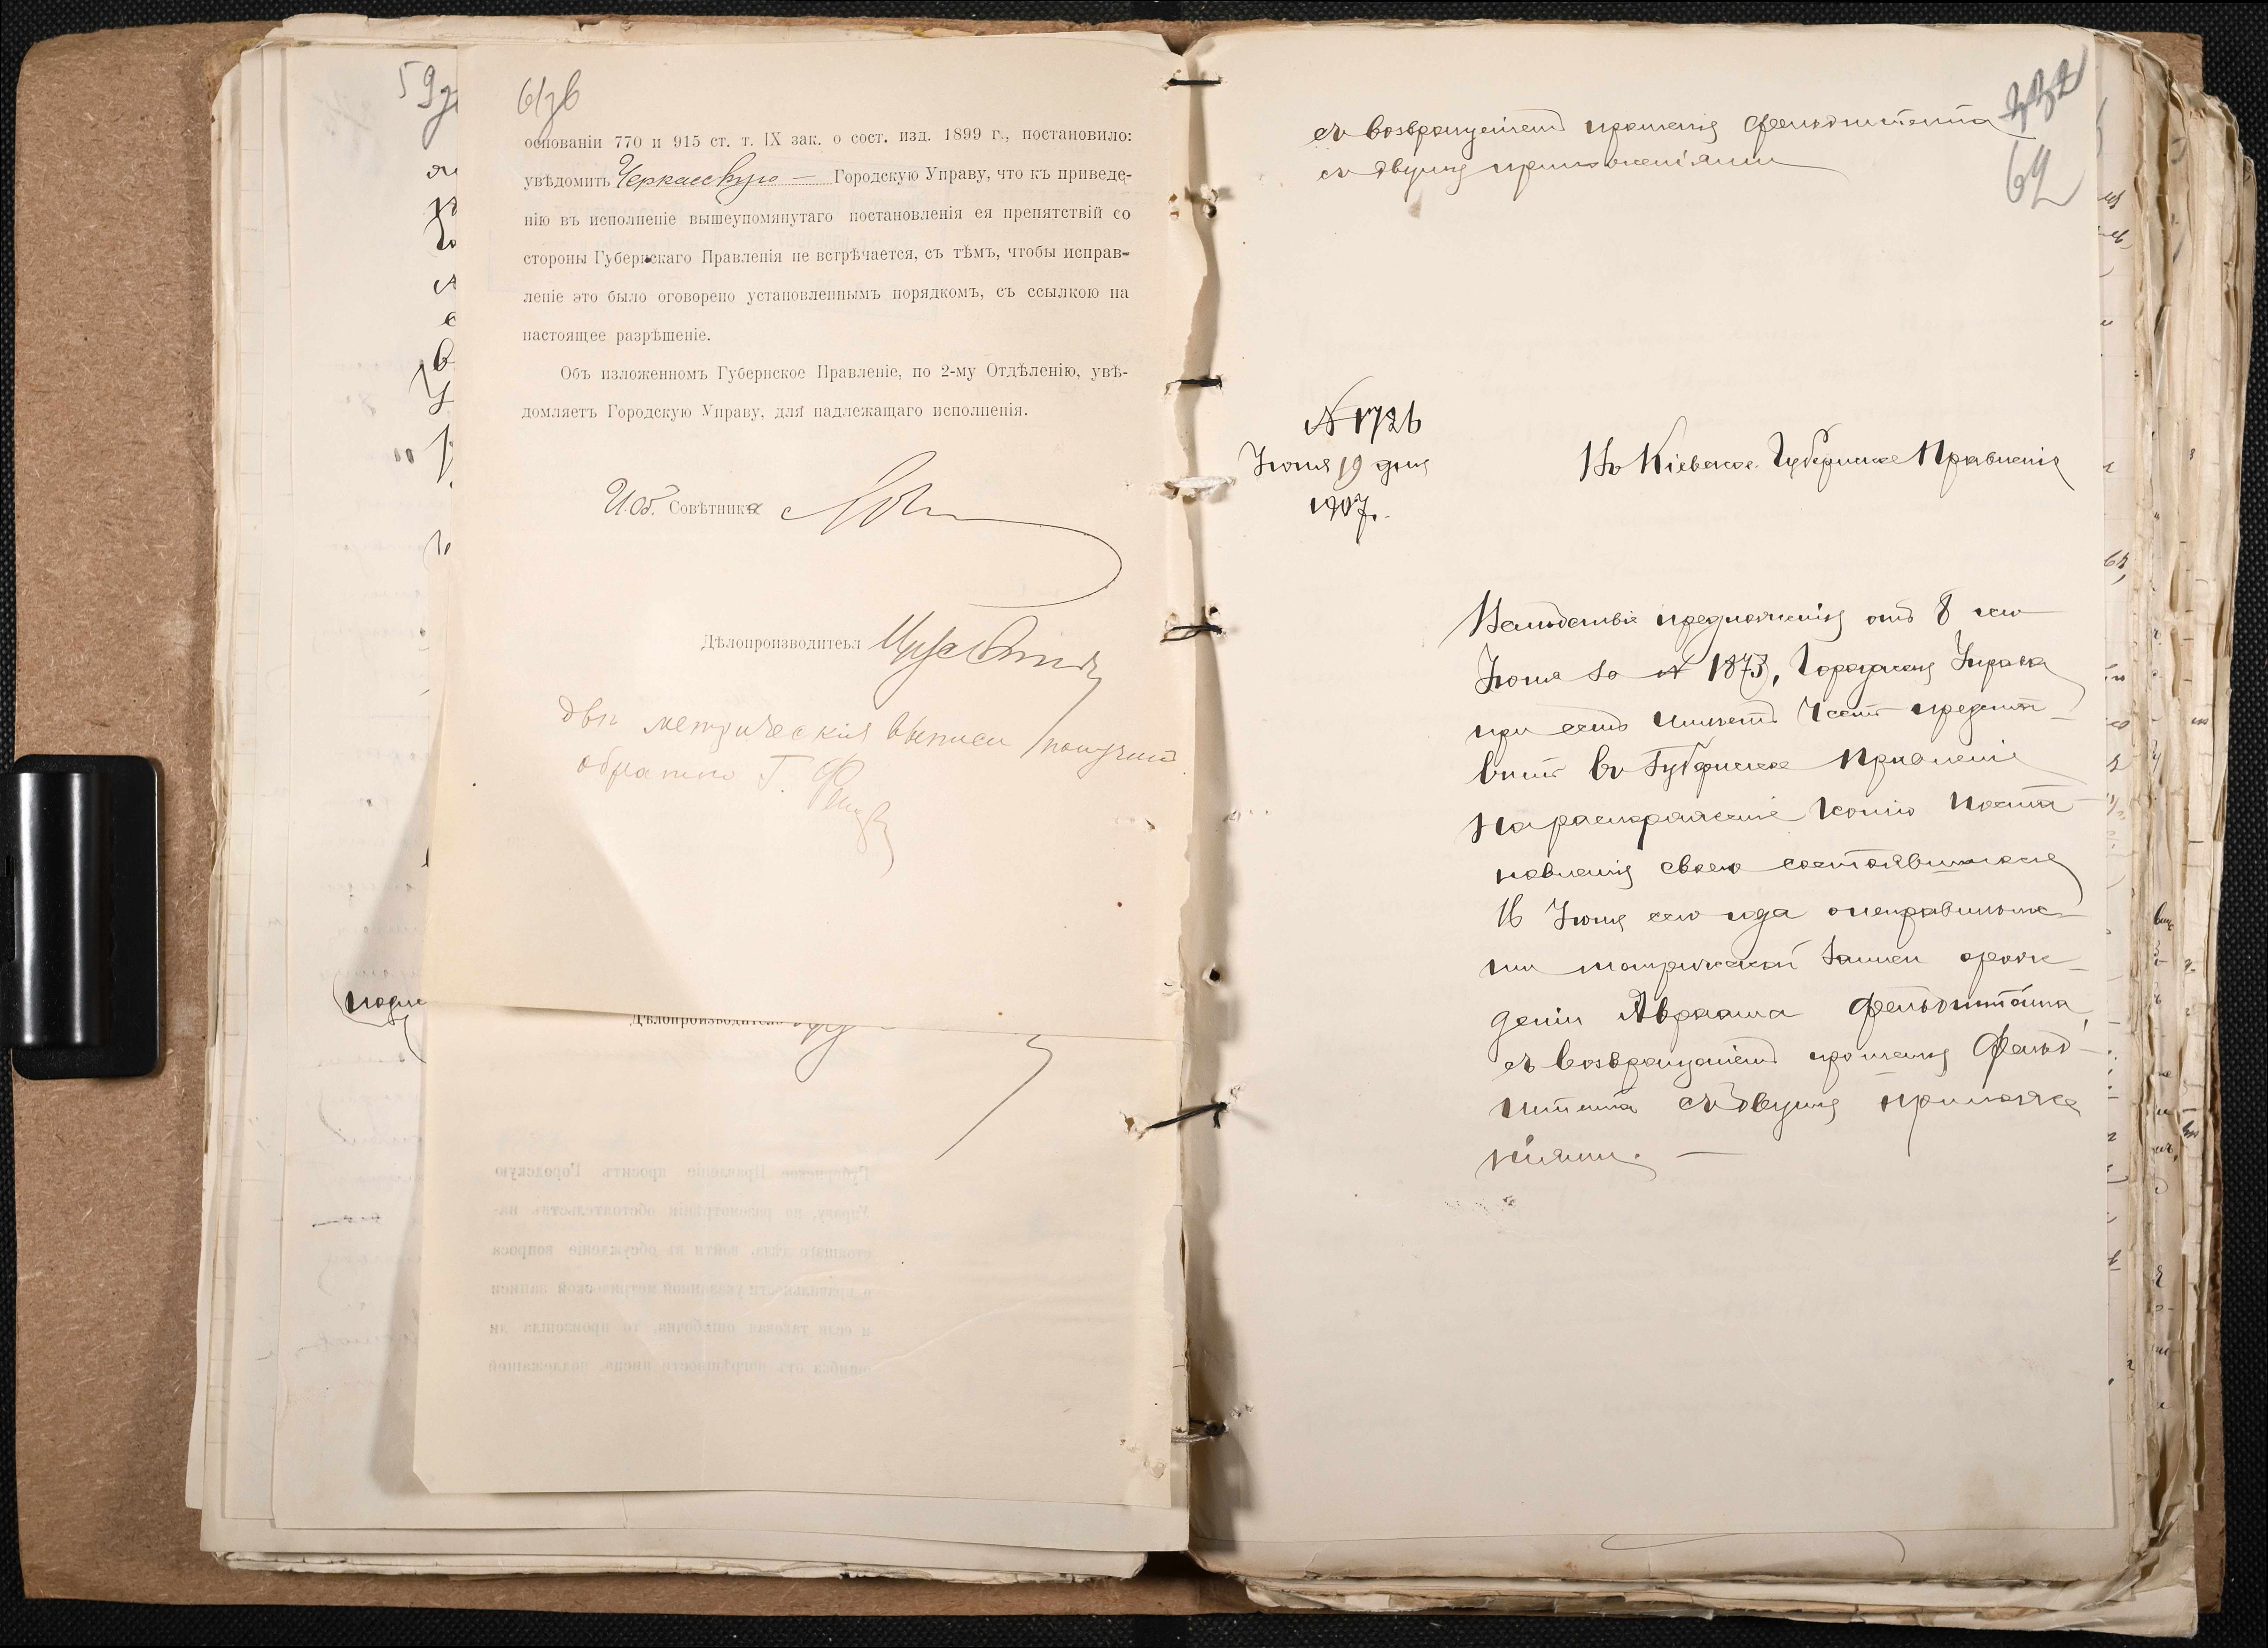 основаніи 770 и 915 ст. т. IX зак. о сост. изд. 1899 г., постановило:
увѣдомить Черкасскую — Городскую Управу, что къ приведе-
нію въ исполненіе вышеупомянутаго постановленія ея препятствій со
стороны Губернскаго Правленія не встрѣчается, съ тѣмъ, чтобы исправ-
леніе это было оговорено установленнымъ порядкомъ, съ ссылкою на
настоящее разрѣшеніе.
Объ изложенномъ Губернское Правленіе, по 2-му Отдѣленію, увѣ-
домляетъ Городскую Управу, для надлежащаго исполненія.
И.об. Совѣтника
Дѣлопроизводитеьл
двѣ метрическія выписи получилъ
обратно Г.
Дѣлопроизводитель
Губернское Правленіе проситъ Городскую
Управу, по разсмотрѣніи обстоятельствъ на-
стоящаго дѣла, войти въ обсужденіе вопроса
о правильности указанной метрической записи
и если таковая ошибочна, то произошла ли
ошибка отъ погрѣшности писца, подлежащей
59
съ возвращеніемъ прошенія Фельдштейна
съ двумя приложеніями
62
№ 1726
Іюня 19 дня
1907.
Въ Кіевское Губернское Правленіе
Вслѣдствіе предложенія отъ 8 сего
Іюня за № 1873, Городская Управа
при семъ имѣетъ честь предста-
вить въ Губернское Правленіе
на распоряженіе копію поста-
новленія своего состоявшагося
16 Іюня сего года о неправильно-
ти метрической записи о рож-
деніи Авраама Фельдштейна,
съ возвращеніемъ прошенія Фельд-
штейна съ двумя приложе
ніями. —